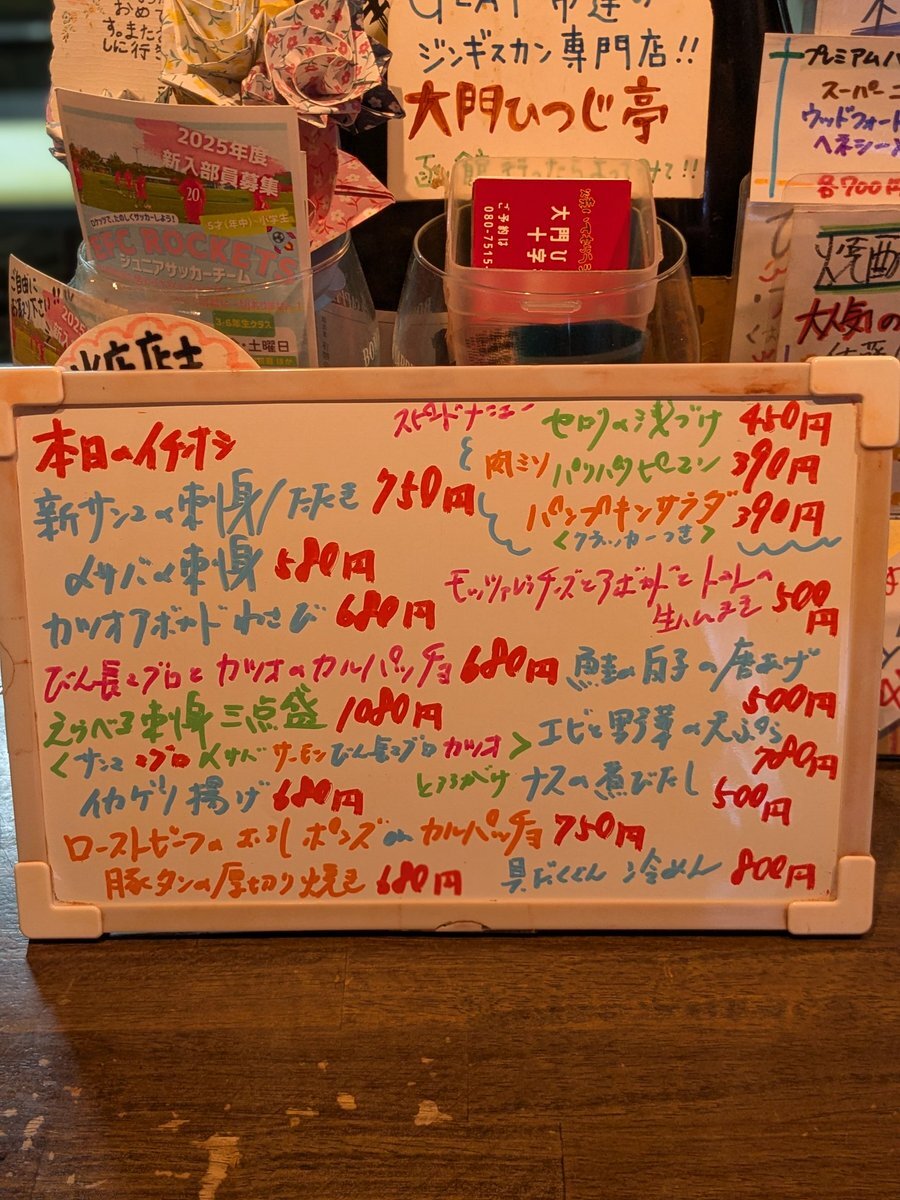 おめで
す。また
しに行
2025年度
新入部員募集
20
ロケッツで、たのしくサッカーしよう!
5才(年中)・小学生
EFC ROCKETS
ジュニアサッカーチーム
3-6年生クラス
・土曜日
ご自由に
お取り下さい
GLAY 御達の
ジンギスカン専門店!!
大門ひつじ亭
函館行ったらよってって!!
大門ひ
十字
ご予約は
080-7515-
プレミアムハ
スーパーニ
ウッドフォード
ヘネシー
各700円
焼酎
大人気の
本日のイチオシ
新サンマの刺身/たたき 750円
〆サバの刺身 580円
カツオアボカドわさび 680円
びん長マグロとカツオのカルパッチョ 680円
えらべる刺身三点盛 1080円
<サンマ マグロ 〆サバ サーモン びん長マグロ カツオ>
イカゲソ揚げ 680円
ローストビーフのおろしポンズdeカルパッチョ 750円
豚タンの厚切り焼き 680円
スピードメニュー
セロリの浅づけ 450円
肉ミソ パリパリピーマン 390円
パンプキンサラダ 390円
<クラッカーつき>
モッツァレラチーズとアボカドとトマトの
生ハムまき 500円
鮭の白子の唐あげ
500円
エビと野菜の天ぷら
780円
とろろがけ ナスの煮びたし 500円
具だくさん 冷めん 800円